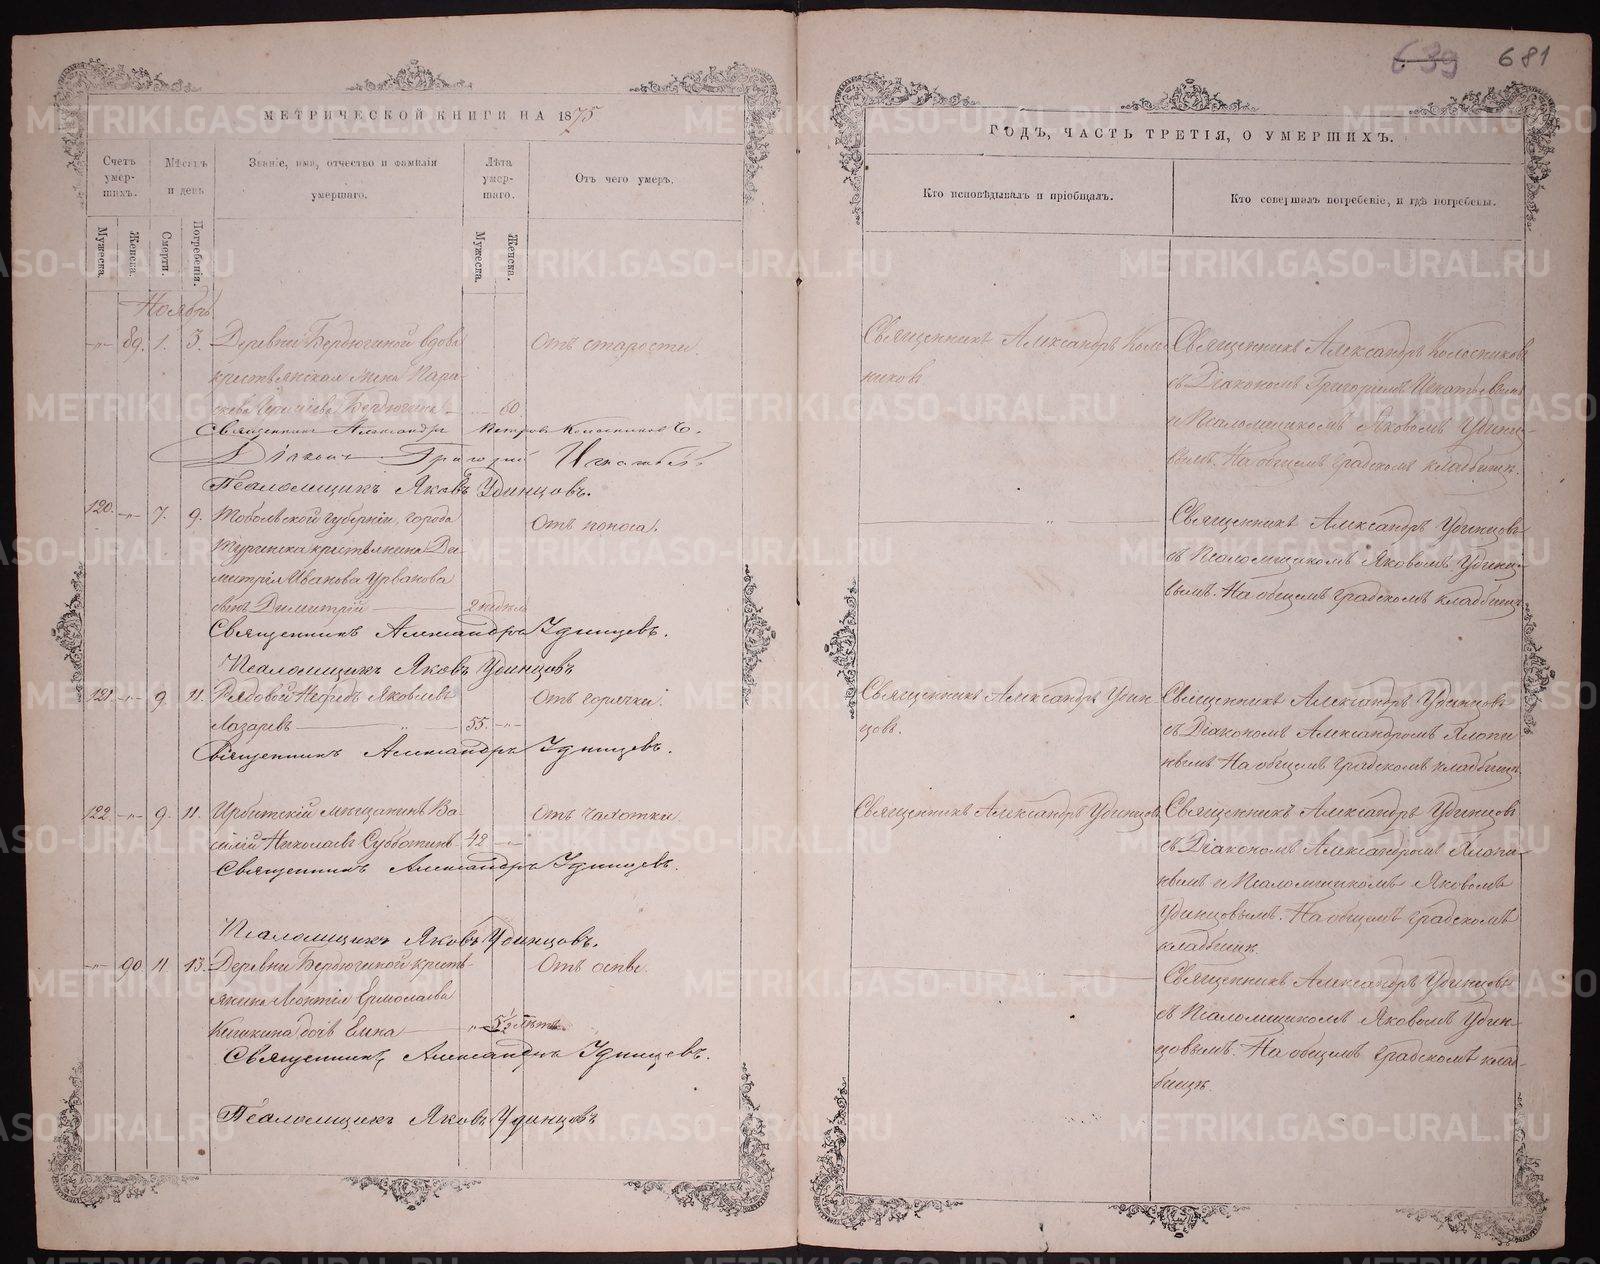 639 681
МЕТРИЧЕСКОЙ КНИГИ НА 1875
Счетъ умер-шихъ.
Мѣсяцъ и день
Званіе, имя, отчество и фамилія умершаго.
Лѣта умер-шаго.
Отъ чего умеръ.
Мужеска.
Женска.
Смерти.
Погребенія.
Мужеска.
Женска.
Ноябрь
-"- 89. 1. 3. Деревни Бердюгиной вдова
Отъ старости.
крестьянская жена Пара-
Бердюгина - 60.
Священникъ Александръ Петровъ Колосниковъ.
Діаконъ Григорій Игнатьевъ
Псаломщикъ Яковъ Удинцовъ.
120. -"- 7. 9. Тобольской губерніи, города
Отъ поноса.
Туринска крестьянина Ди-
митрія Иванова Урванова
сынъ Димитрій 2 недѣли
Священникъ Александръ Удинцевъ.
Псаломщикъ Яковъ Удинцовъ
121. -"- 9. 11. Рядовой Нефедъ Яковлевъ
Отъ горячки.
Лазаревъ 55. -"-
Священникъ Александръ Удинцевъ.
122. -"- 9. 11. Ирбитскій мѣщанинъ Ва-
Отъ чахотки.
силій Николаевъ Субботинъ 42 -"-
Священникъ Александръ Удинцевъ.
Псаломщикъ Яковъ Удинцовъ.
-"- 90. 11. 13. Деревни Бердюгиной кресть-
Отъ оспы.
янина Леонтія Ермолаева
дочь Елена " 5½ лѣтъ
Священникъ Александръ Удинцевъ.
Псаломщикъ Яковъ Удинцовъ
ГОДЪ, ЧАСТЬ ТРЕТІЯ, О УМЕРШИХЪ.
Кто исповѣдывалъ и пріобщалъ.
Кто совершалъ погребеніе, и гдѣ погребены.
Священникъ Александръ Колос-
никовъ
Священникъ Александръ Колосниковъ
съ Діакономъ Григоріемъ Игнатьевымъ
и Псаломщикомъ Яковомъ Удинцо-
вымъ. На общемъ градскомъ кладбищѣ.
"
Священникъ Александръ Удинцовъ
съ Псаломщикомъ Яковомъ Удинцо-
вымъ. На общемъ градскомъ кладбищѣ
Священникъ Александръ Удин-
цовъ.
Священникъ Александръ Удинцовъ
съ Діакономъ Александромъ Ляпу-
новымъ. На общемъ градскомъ кладбищѣ.
Священникъ Александръ Удинцовъ
Священникъ Александръ Удинцовъ
съ Діакономъ Александромъ
и Псаломщикомъ Яковомъ
Удинцовымъ. На общемъ градскомъ
кладбищѣ.
Священникъ Александръ Удинцовъ
съ Псаломщикомъ Яковомъ Удин-
цовымъ. На общемъ градскомъ клад-
бищѣ.
METRIKI.GASO-URAL.RU